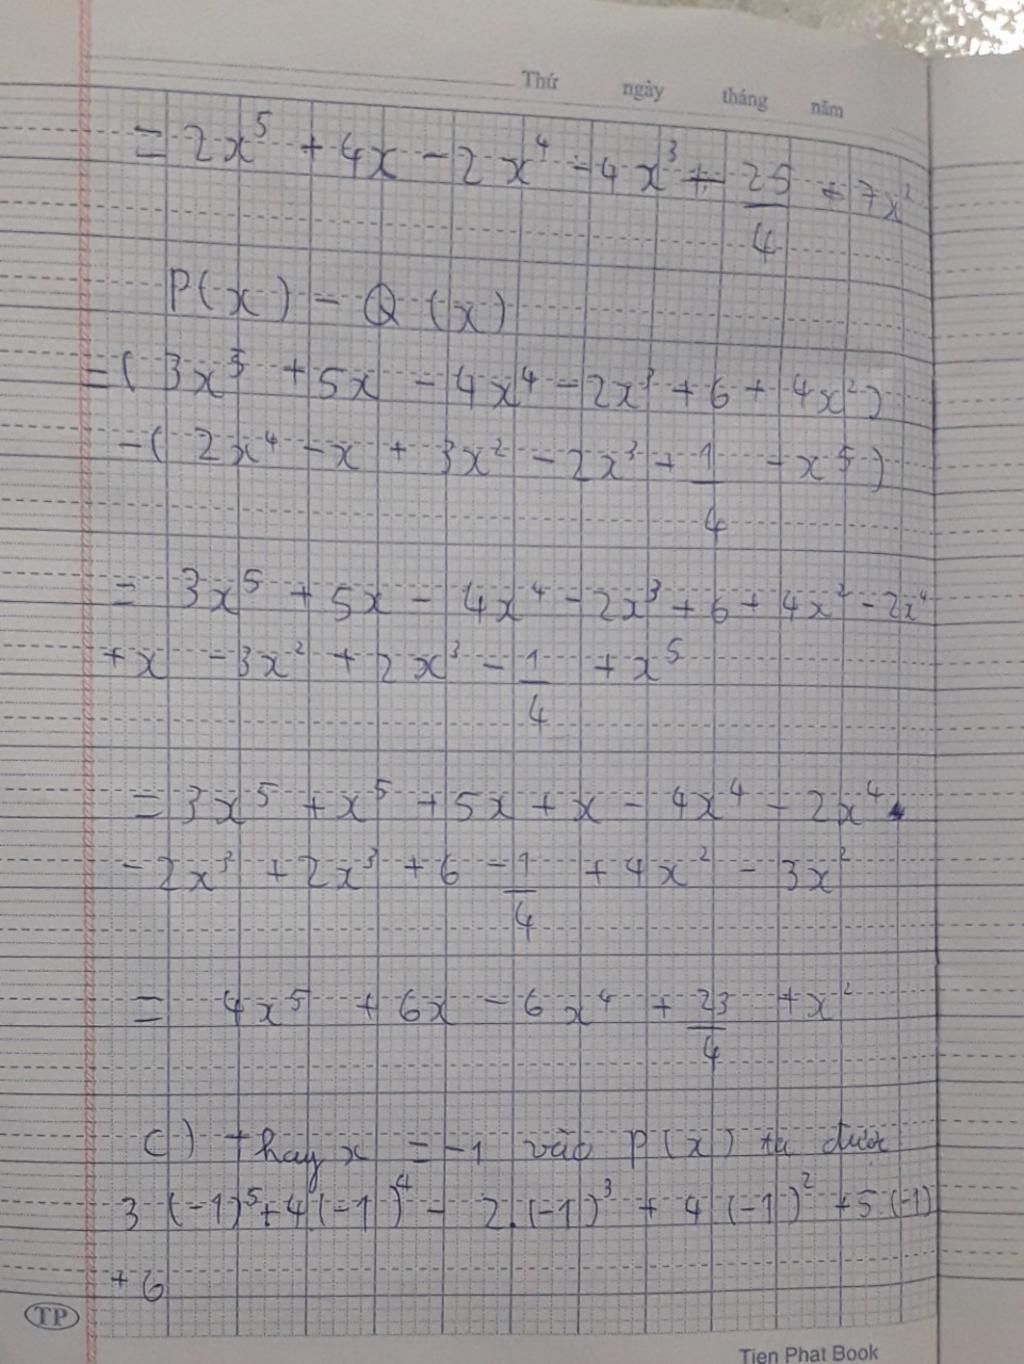 Thứ ngày tháng năm
= 2x⁵ + 4x - 2x⁴ - 4x³ + 25/4 + 7x²
P(x) - Q(x)
= (3x⁵ + 5x - 4x⁴ - 2x³ + 6 + 4x²)
- (2x⁴ - x + 3x² - 2x³ + 1/4 - x⁵)
= 3x⁵ + 5x - 4x⁴ - 2x³ + 6 + 4x² - 2x⁴
+ x - 3x² + 2x³ - 1/4 + x⁵
= 3x⁵ + x⁵ + 5x + x - 4x⁴ - 2x⁴
- 2x³ + 2x³ + 6 - 1/4 + 4x² - 3x²
= 4x⁵ + 6x - 6x⁴ + 23/4 + x²
c) thay x = -1 vào P(x) ta được
3(-1)⁵ + 4(-1)⁴ - 2.(-1)³ + 4(-1)² + 5.(-1)
+ 6
TP
Tien Phat Book